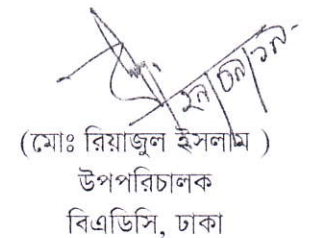 (মোঃ রিয়াজুল ইসলাম )
উপপরিচালক
বিএডিসি, ঢাকা